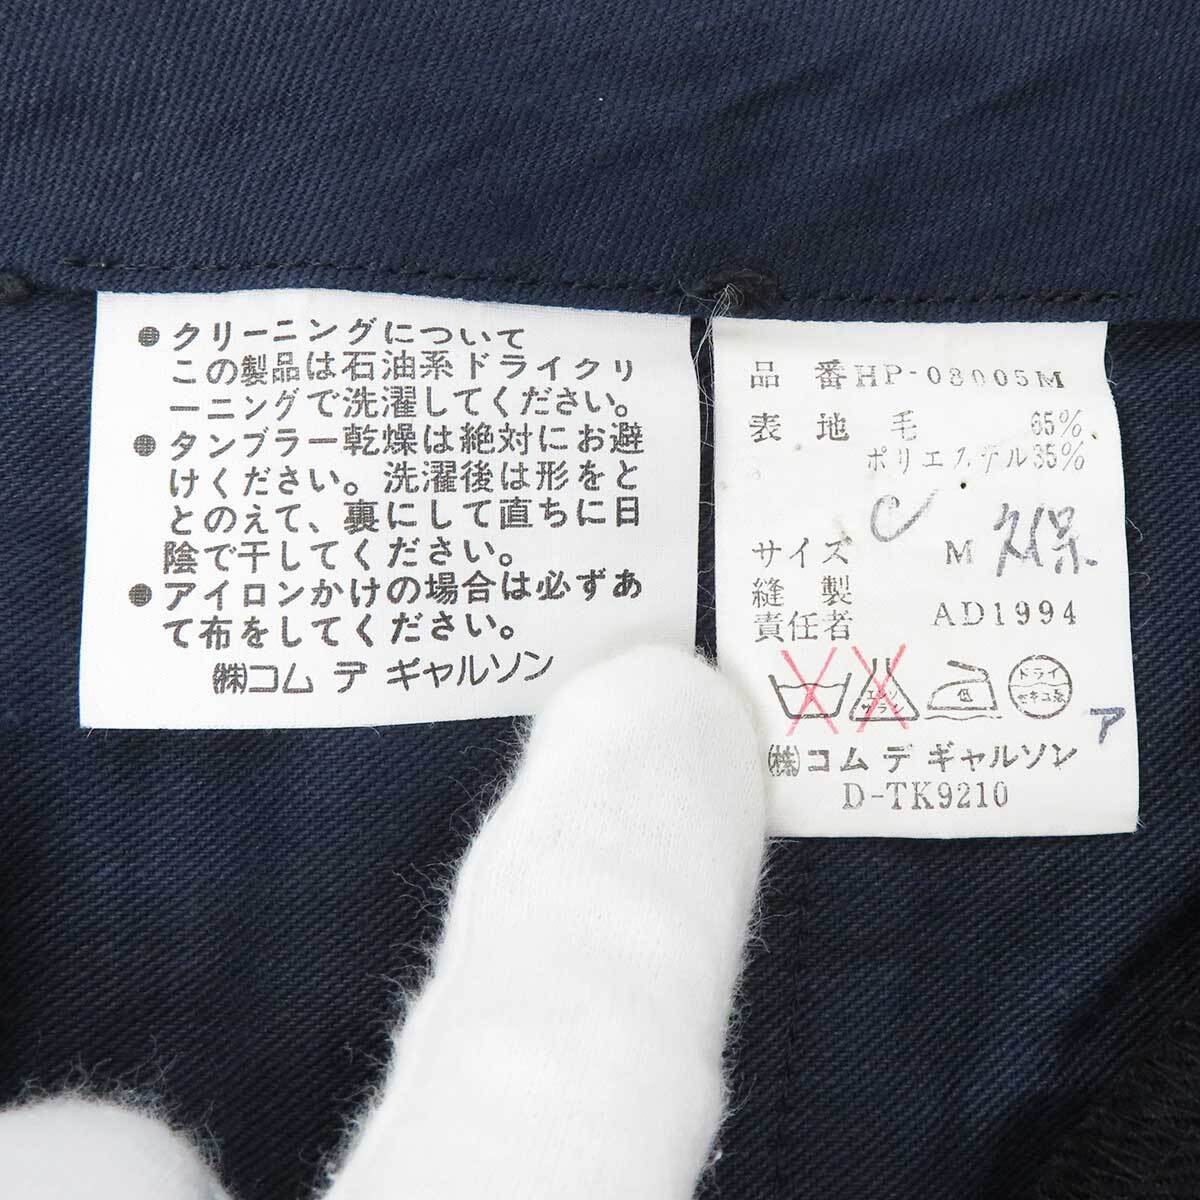 ●クリーニングについて
この製品は石油系ドライクリ
ーニングで洗濯してください。
●タンブラー乾燥は絶対にお避
けください。洗濯後は形をと
とのえて、裏にして直ちに日
陰で干してください。
●アイロンかけの場合は必ずあ
て布をしてください。
㈱コム デ ギャルソン
品 番 HP-08005M
表 地 毛 65%
ポリエステル35%
サイズ M 久保
縫 製
責任者 AD1994
エンソ
サラシ
低
ドライ
セキユ系
ア
㈱コム デ ギャルソン
D-TK9210